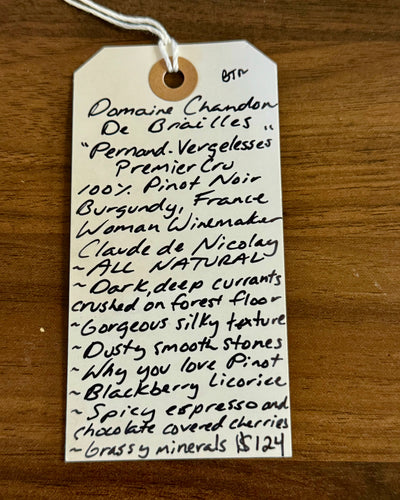 BTR
Domaine Chandon
De Briailles
"Pernand-Vergelesses"
Premier Cru
100% Pinot Noir
Burgundy, France
Woman Winemaker
Claude de Nicolay
~ALL NATURAL
~Dark, deep currants
crushed on forest floor
~Gorgeous silky texture
~Dusty smooth stones
~Why you love Pinot
~Blackberry Licorice
~Spicy espresso and
chocolate covered cherries
~Grassy minerals $124